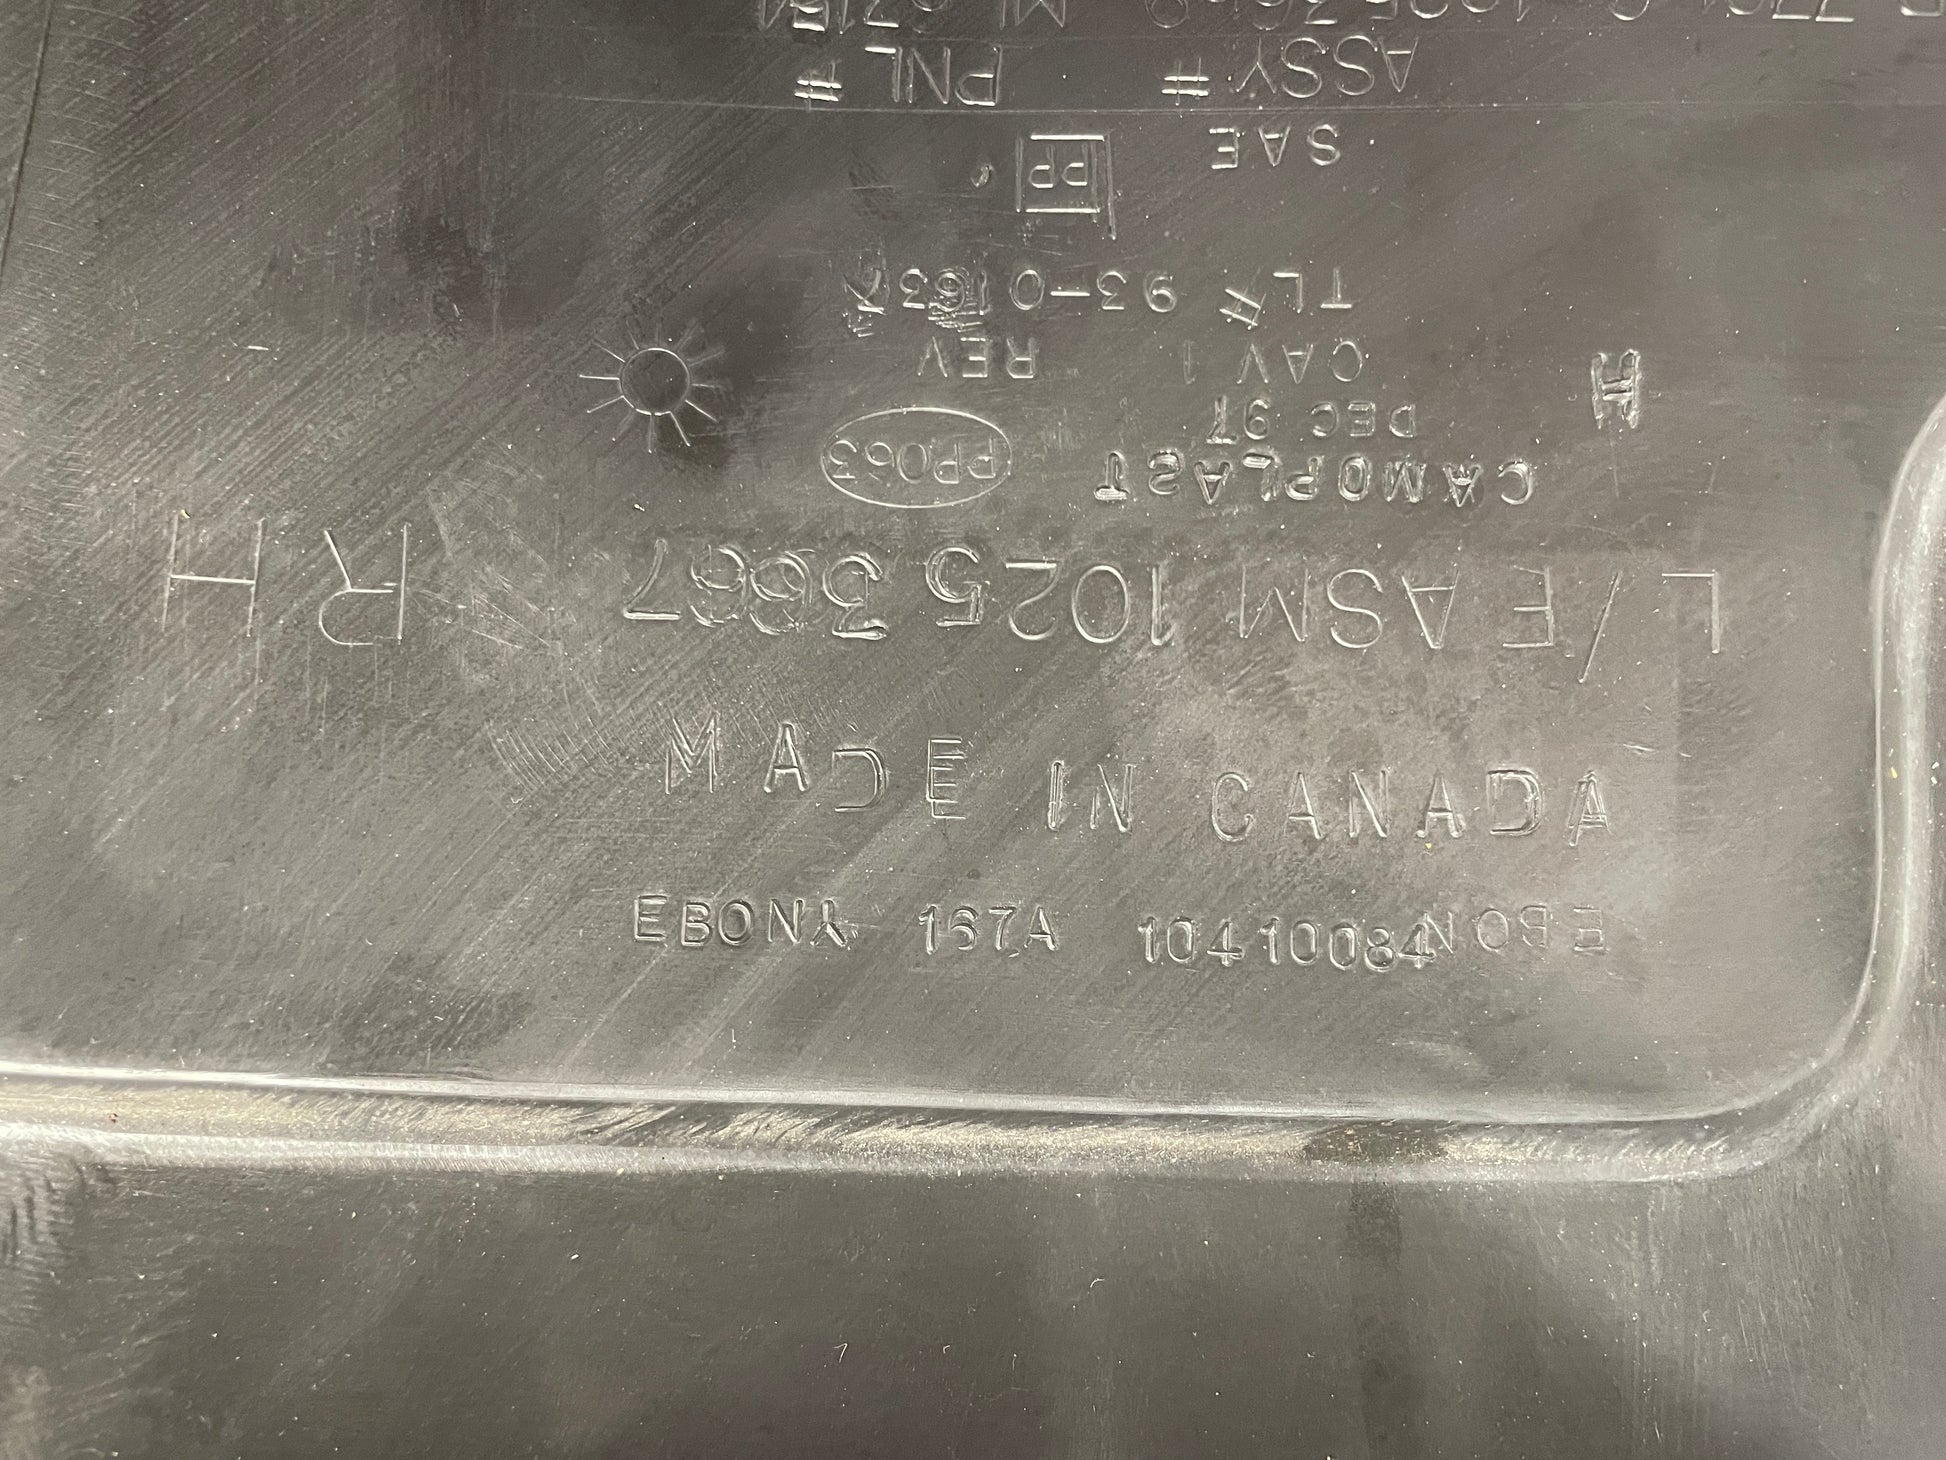 EBON
L/F ASM 10253667 RH
CAMOPLAST PP063
DEC 97
H
CAV 1 REV
TL#
SAE PP
ASSY # PNL #
MADE IN CANADA
EBONY 167A 10410084